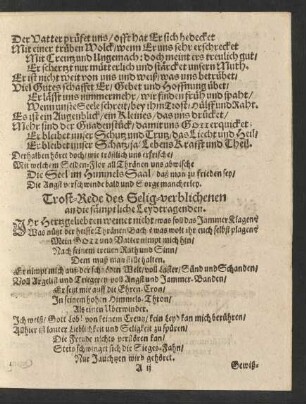 Der Vatter prüfet uns / offt hat Er sich bedecket
Mit einer trüben Wolck / wenn Er uns sehr erschrecket
Mit Creutz und Ungemach; doch meint ers treulich gut /
Er schertzt nur mütterlich und stärcket unsern Muth.
Er ist nicht weit von uns und weiß / was uns betrübet /
Viel Gutes schaffet Er / Gebet und Hoffnung übet /
Er läst uns nimmermehr / wir finden früh und spaht /
Wenn unsre Seele schreit / bey ihm Trost / Hülff und Raht.
Es ist ein Augenblick / ein Kleines / das uns drücket /
Mehr sind der Gnadenstück / damit uns GOtt erquicket:
Er bleibet unser Schutz und Trutz / das Liecht und Heil /
Er bleibet unser Schatz / ja / Lebens Krafft und Theil.
Derhalben höret doch / wie tröstlich uns zuspricht /
Mit welchem Seiden-Flor all Thränen uns abwischt
Die Seel im Himmels Saal / das man zu frieden sey /
Die Angst verschwinde bald und Sorge mancherley.
Trost-Rede des Selig-verblichenen
an die sämptliche Leydtragenden.
IHr Hertzgeliebten weinet nicht / was soll das Jammer Klagen?
Was nützt der heisse Thränen Bach & was wolt ihr euch selbst plagen?
Mein GOtt und Vatter nimpt mich hin /
Nach seinem treuen Rath und Sinn /
Dem muß man stille halten.
Er nimpt mich aus der schnöden Welt / voll Laster / Sünd und Schanden /
Voll Arglist und Triegerey / voll Angst und Jammer-Banden /
Er setzt mir auff die Ehren-Cron /
In seinem hohen Himmels-Thron /
Als einen Uberwinder.
Ich weiß / Gott Lob! von keinem Creutz / kein Leyd kan mich berühren /
Allhier ist lauter Lieblichkeit und Seligkeit zu spüren /
Die Freude nichts verstören kan /
Stets schwinget sich die Sieges-Fahn /
Nur Jauchzen wird gehöret.
A ij
Gewiß-